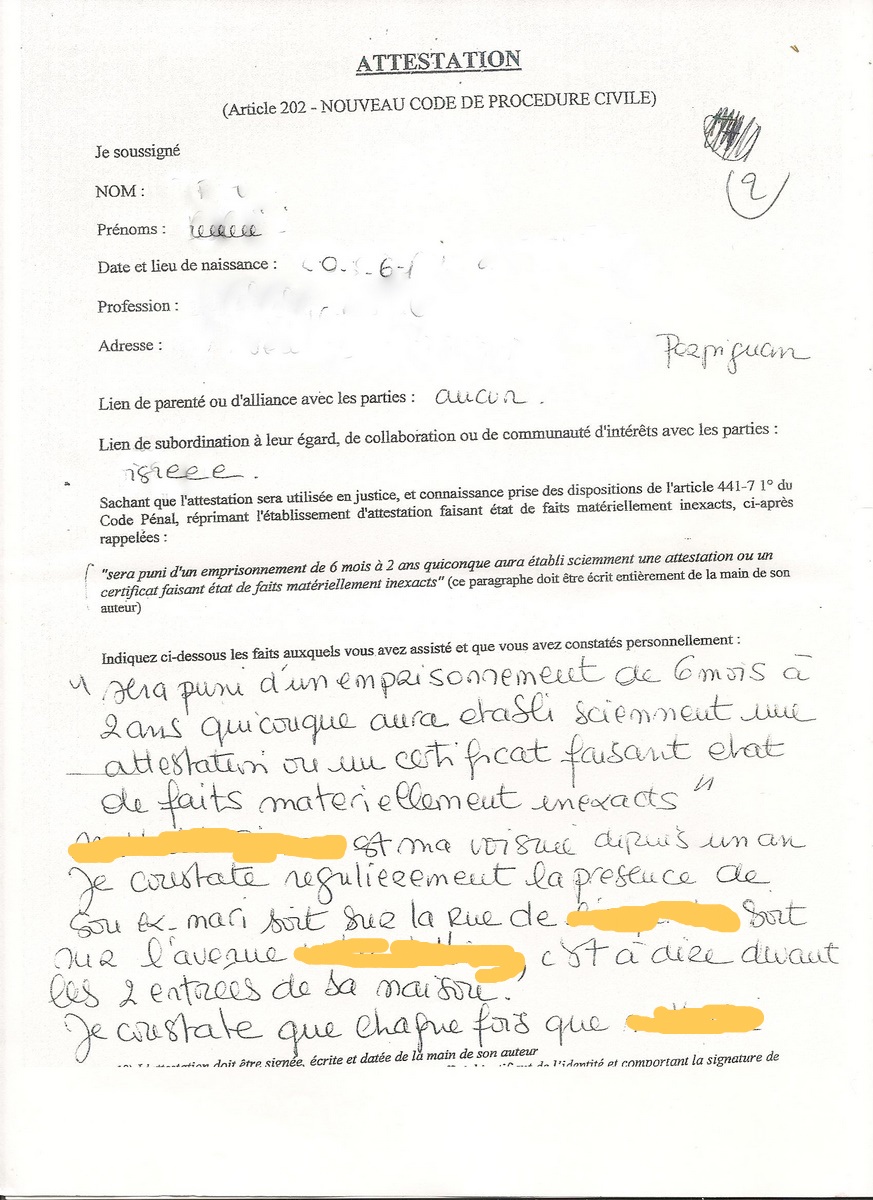 ATTESTATION
(Article 202 - NOUVEAU CODE DE PROCEDURE CIVILE)
2
Je soussigné
NOM :
Prénoms :
Date et lieu de naissance :
Profession :
Adresse :
Perpignan
Lien de parenté ou d'alliance avec les parties : aucun .
Lien de subordination à leur égard, de collaboration ou de communauté d'intérêts avec les parties :
Sachant que l'attestation sera utilisée en justice, et connaissance prise des dispositions de l'article 441-7 1° du
Code Pénal, réprimant l'établissement d'attestation faisant état de faits matériellement inexacts, ci-après
rappelées :
"sera puni d'un emprisonnement de 6 mois à 2 ans quiconque aura établi sciemment une attestation ou un
certificat faisant état de faits matériellement inexacts" (ce paragraphe doit être écrit entièrement de la main de son
auteur)
Indiquez ci-dessous les faits auxquels vous avez assisté et que vous avez constatés personnellement :
" sera puni d'un emprisonnement de 6 mois à
2 ans quiconque aura etabli sciemment une
attestation ou un certificat faisant etat
de faits materiellement inexacts "
est ma voisine depuis un an
Je constate regulierement la presence de
son ex-mari soit sur la rue de soit
sur l'avenue , c'est à dire devant
les 2 entrees de sa maison.
Je constate que chaque fois que
attestation doit être signée, écrite et datée de la main de son auteur
de l'identité et comportant la signature de